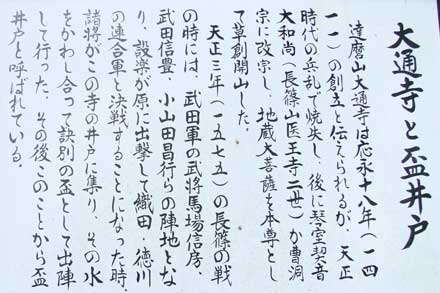 大通寺と盃井戸
達磨山大通寺は応永十八年(一四
一一)の創立と伝えられるが、天正
時代の兵乱で焼失し、後に琴室契音
大和尚(長篠山医王寺二世)が曹洞
宗に改宗し、地蔵大菩薩を本尊とし
て草創開山した。
天正三年(一五七五)の長篠の戦
の時には、武田軍の武将馬場信房、
武田信豊、小山田昌行らの陣地とな
り、設楽が原に出撃して織田・徳川
の連合軍と決戦することになった時、
諸将がこの寺の井戸に集り、その水
をかわし合って訣別の盃として出陣
して行った。その後このことから盃
井戸と呼ばれている。